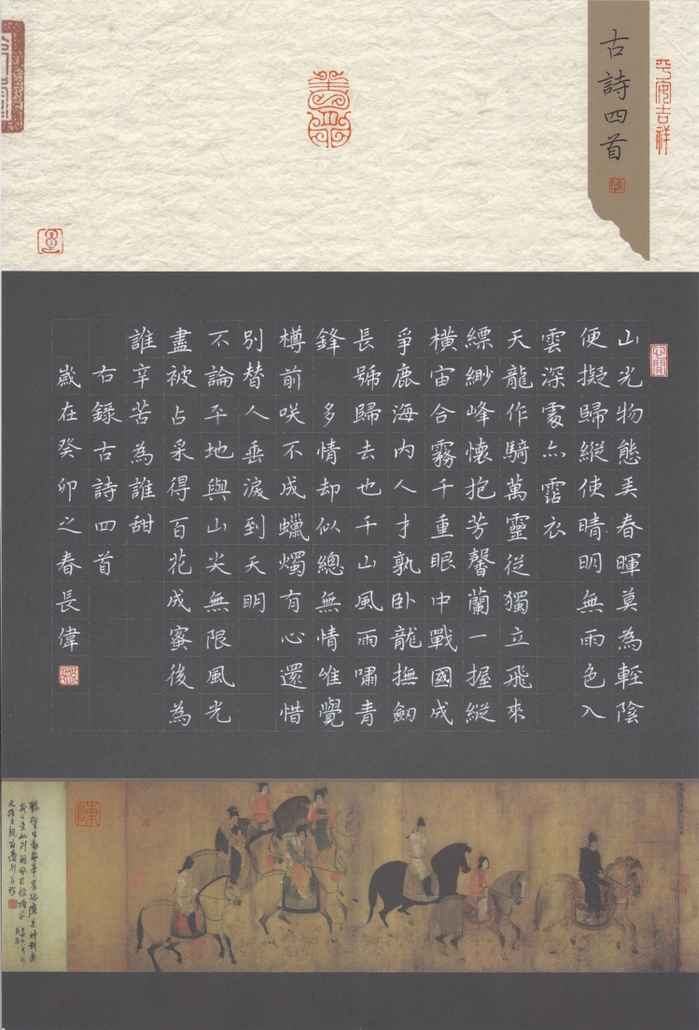 古詩四首
平安吉祥
山光物態弄春暉莫為輕陰
便擬歸縱使晴明無雨色入
雲深處亦霑衣
天龍作騎萬靈從獨立飛來
縹緲峰懷抱芳馨蘭一握縱
橫宙合霧千重眼中戰國成
爭鹿海內人才孰臥龍撫劍
長號歸去也千山風雨嘯青
鋒 多情却似總無情惟覺
樽前咲不成蠟燭有心還惜
別替人垂淚到天明
不論平地與山尖無限風光
盡被占采得百花成蜜後為
誰辛苦為誰甜
右錄古詩四首
歲在癸卯之春長偉
陳